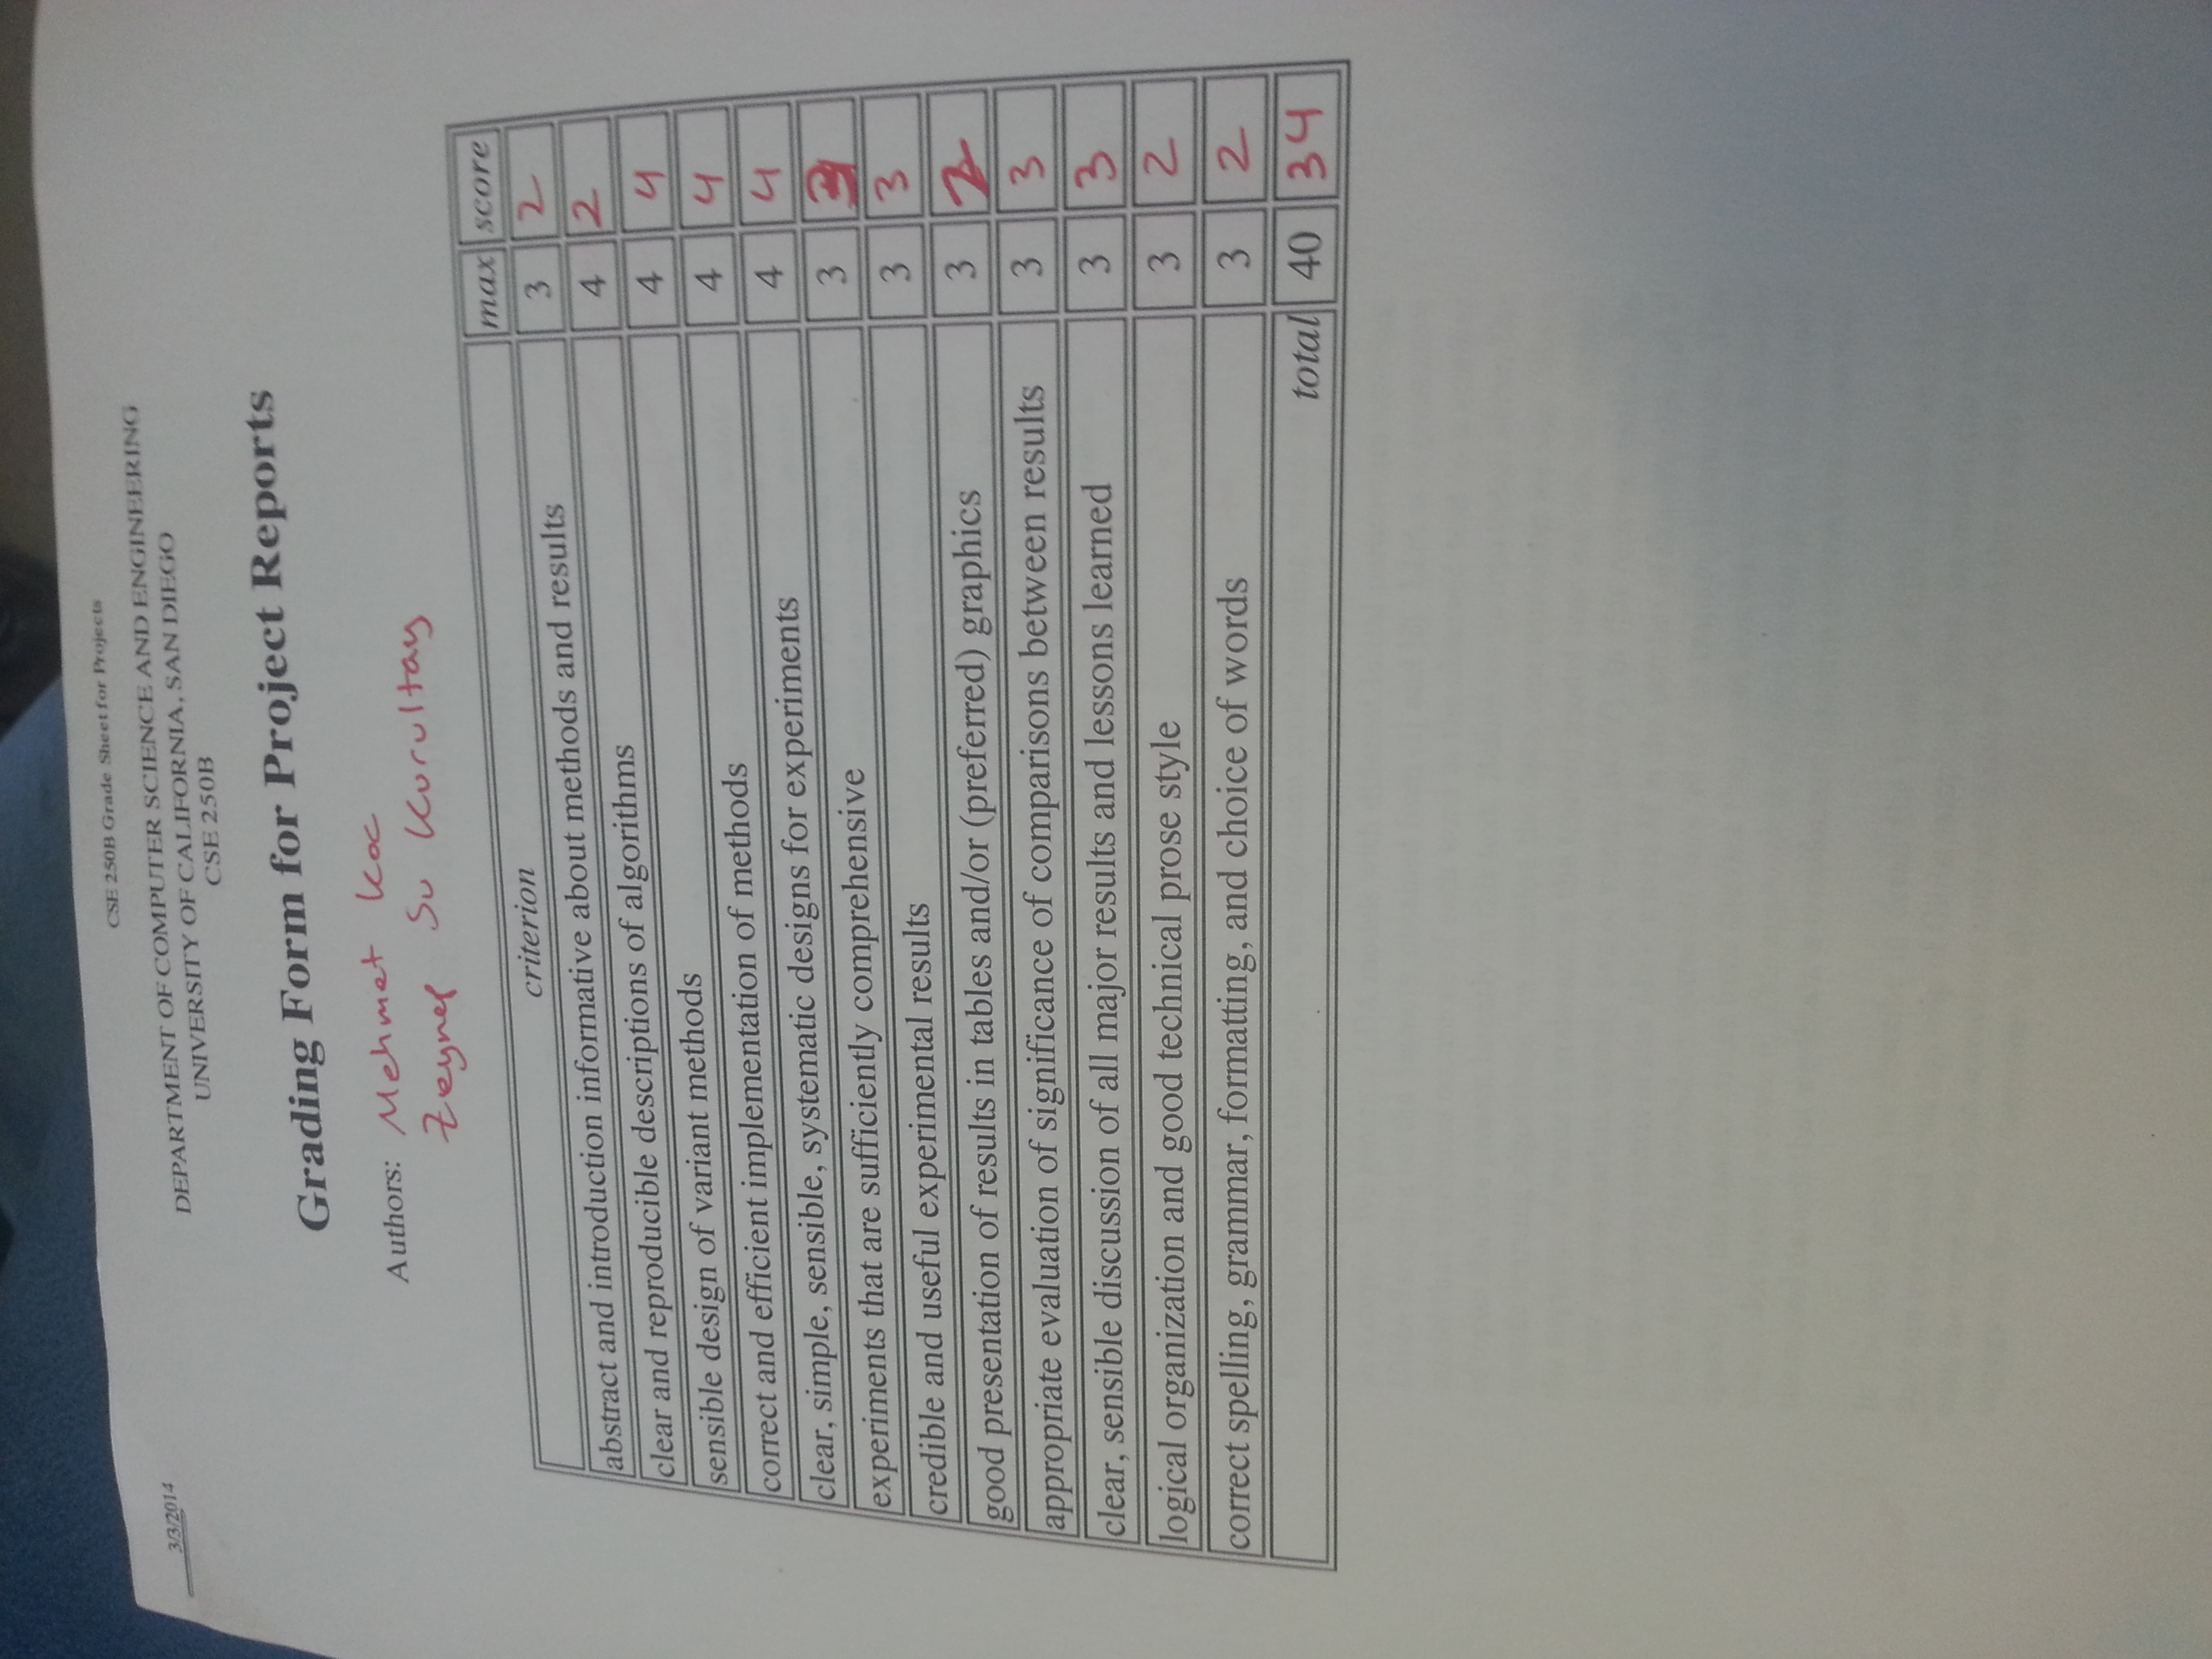 CSE 250B Grade Sheet for Projects
3/3/2014
DEPARTMENT OF COMPUTER SCIENCE AND ENGINEERING
UNIVERSITY OF CALIFORNIA, SAN DIEGO
CSE 250B
Grading Form for Project Reports
Authors: Mehmet Koc
Zeynep Su Kurultay
criterion max score
abstract and introduction informative about methods and results 3 2
clear and reproducible descriptions of algorithms 4 2
sensible design of variant methods 4 4
correct and efficient implementation of methods 4 4
clear, simple, sensible, systematic designs for experiments 4 4
experiments that are sufficiently comprehensive 3 3
credible and useful experimental results 3 3
good presentation of results in tables and/or (preferred) graphics 3 2
appropriate evaluation of significance of comparisons between results 3 3
clear, sensible discussion of all major results and lessons learned 3 3
logical organization and good technical prose style 3 2
correct spelling, grammar, formatting, and choice of words 3 2
total 40 34